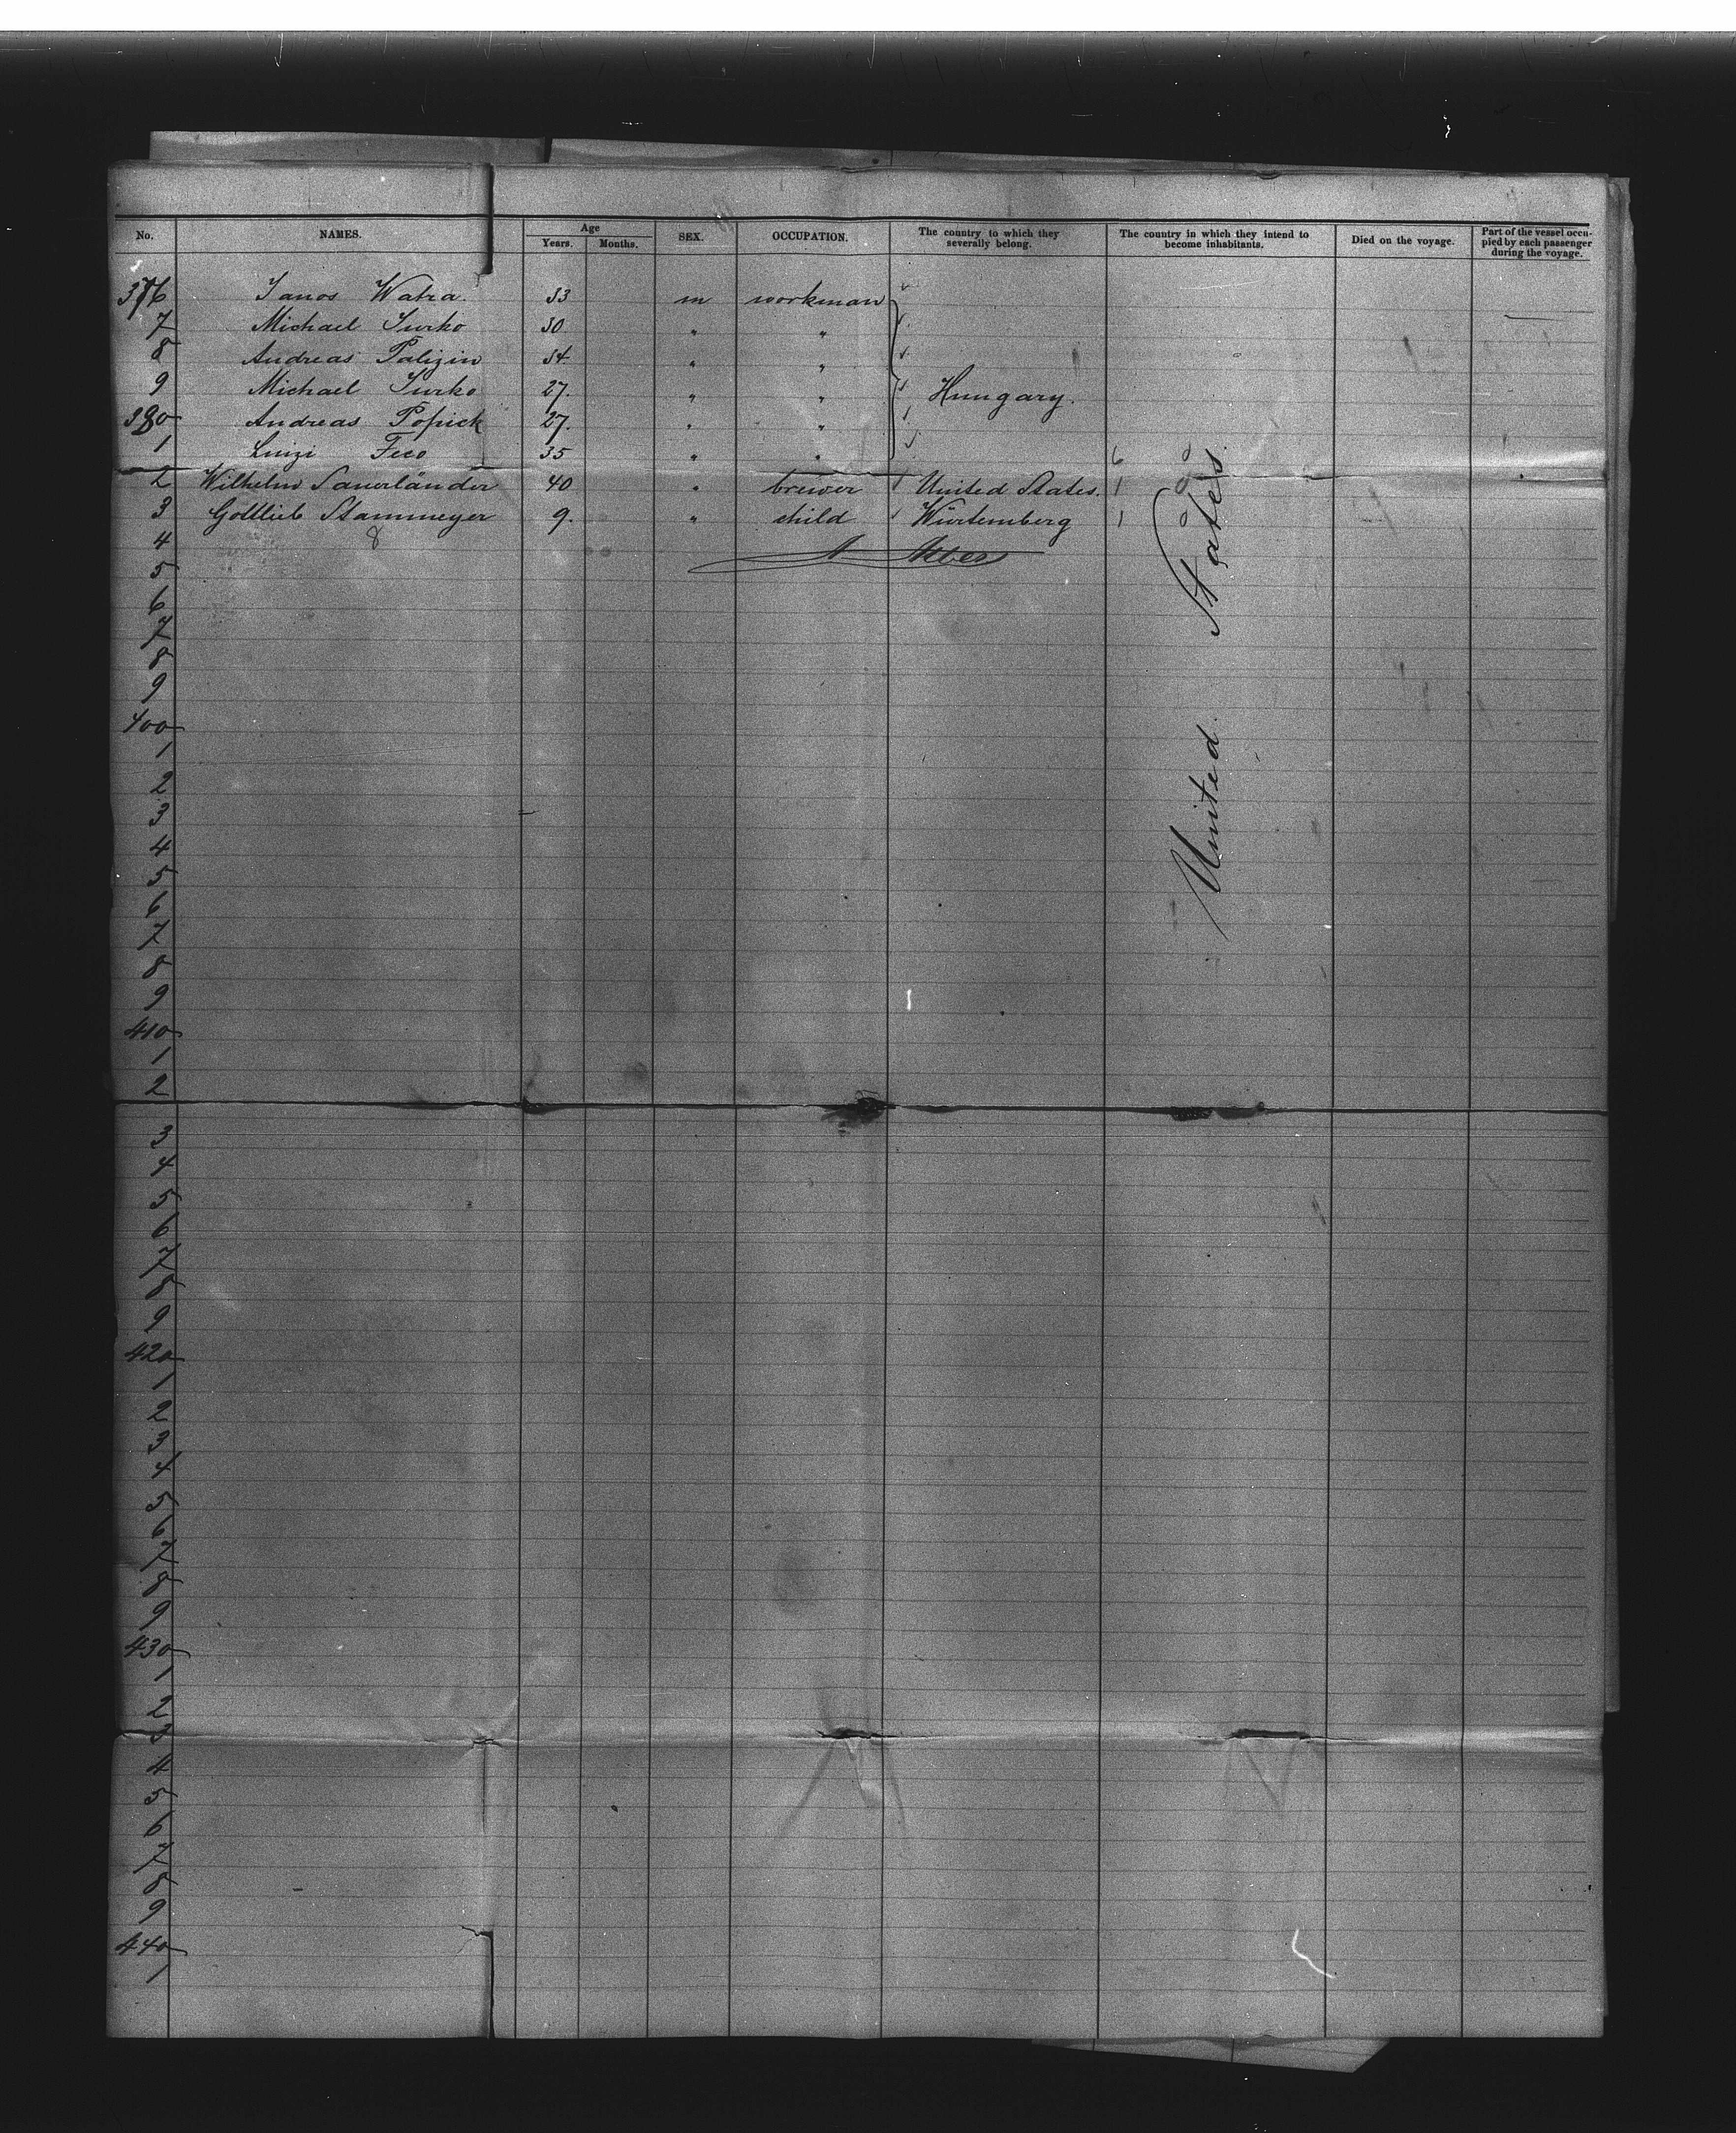 No. NAMES. Age Years. Months. SEX. OCCUPATION. The country to which they severally belong. The country in which they intend to become inhabitants. Died on the voyage. Part of the vessel occupied by each passenger during the voyage.
376 Janos Watra. 33 m workman
7 Michael Jurko 30 " "
8 Andreas Palizin 34 " "
9 Michael Jurko 27. " " Hungary.
380 Andreas Popick 27. " "
1 Luizi Feco 35 " " 6 0
2 Wilhelm Sauerländer 40 " brewer United States. 1 0
3 Gottlieb Stammeyer 9. " child Würtemberg 1 0
4 8
5
6
7
8
9
400
1
2
3
4
5
6
7
8
9
410
1
2
3
4
5
6
7
8
9
420
1
2
3
4
5
6
7
8
9
430
1
2
3
4
5
6
7
8
9
440
1
United States.